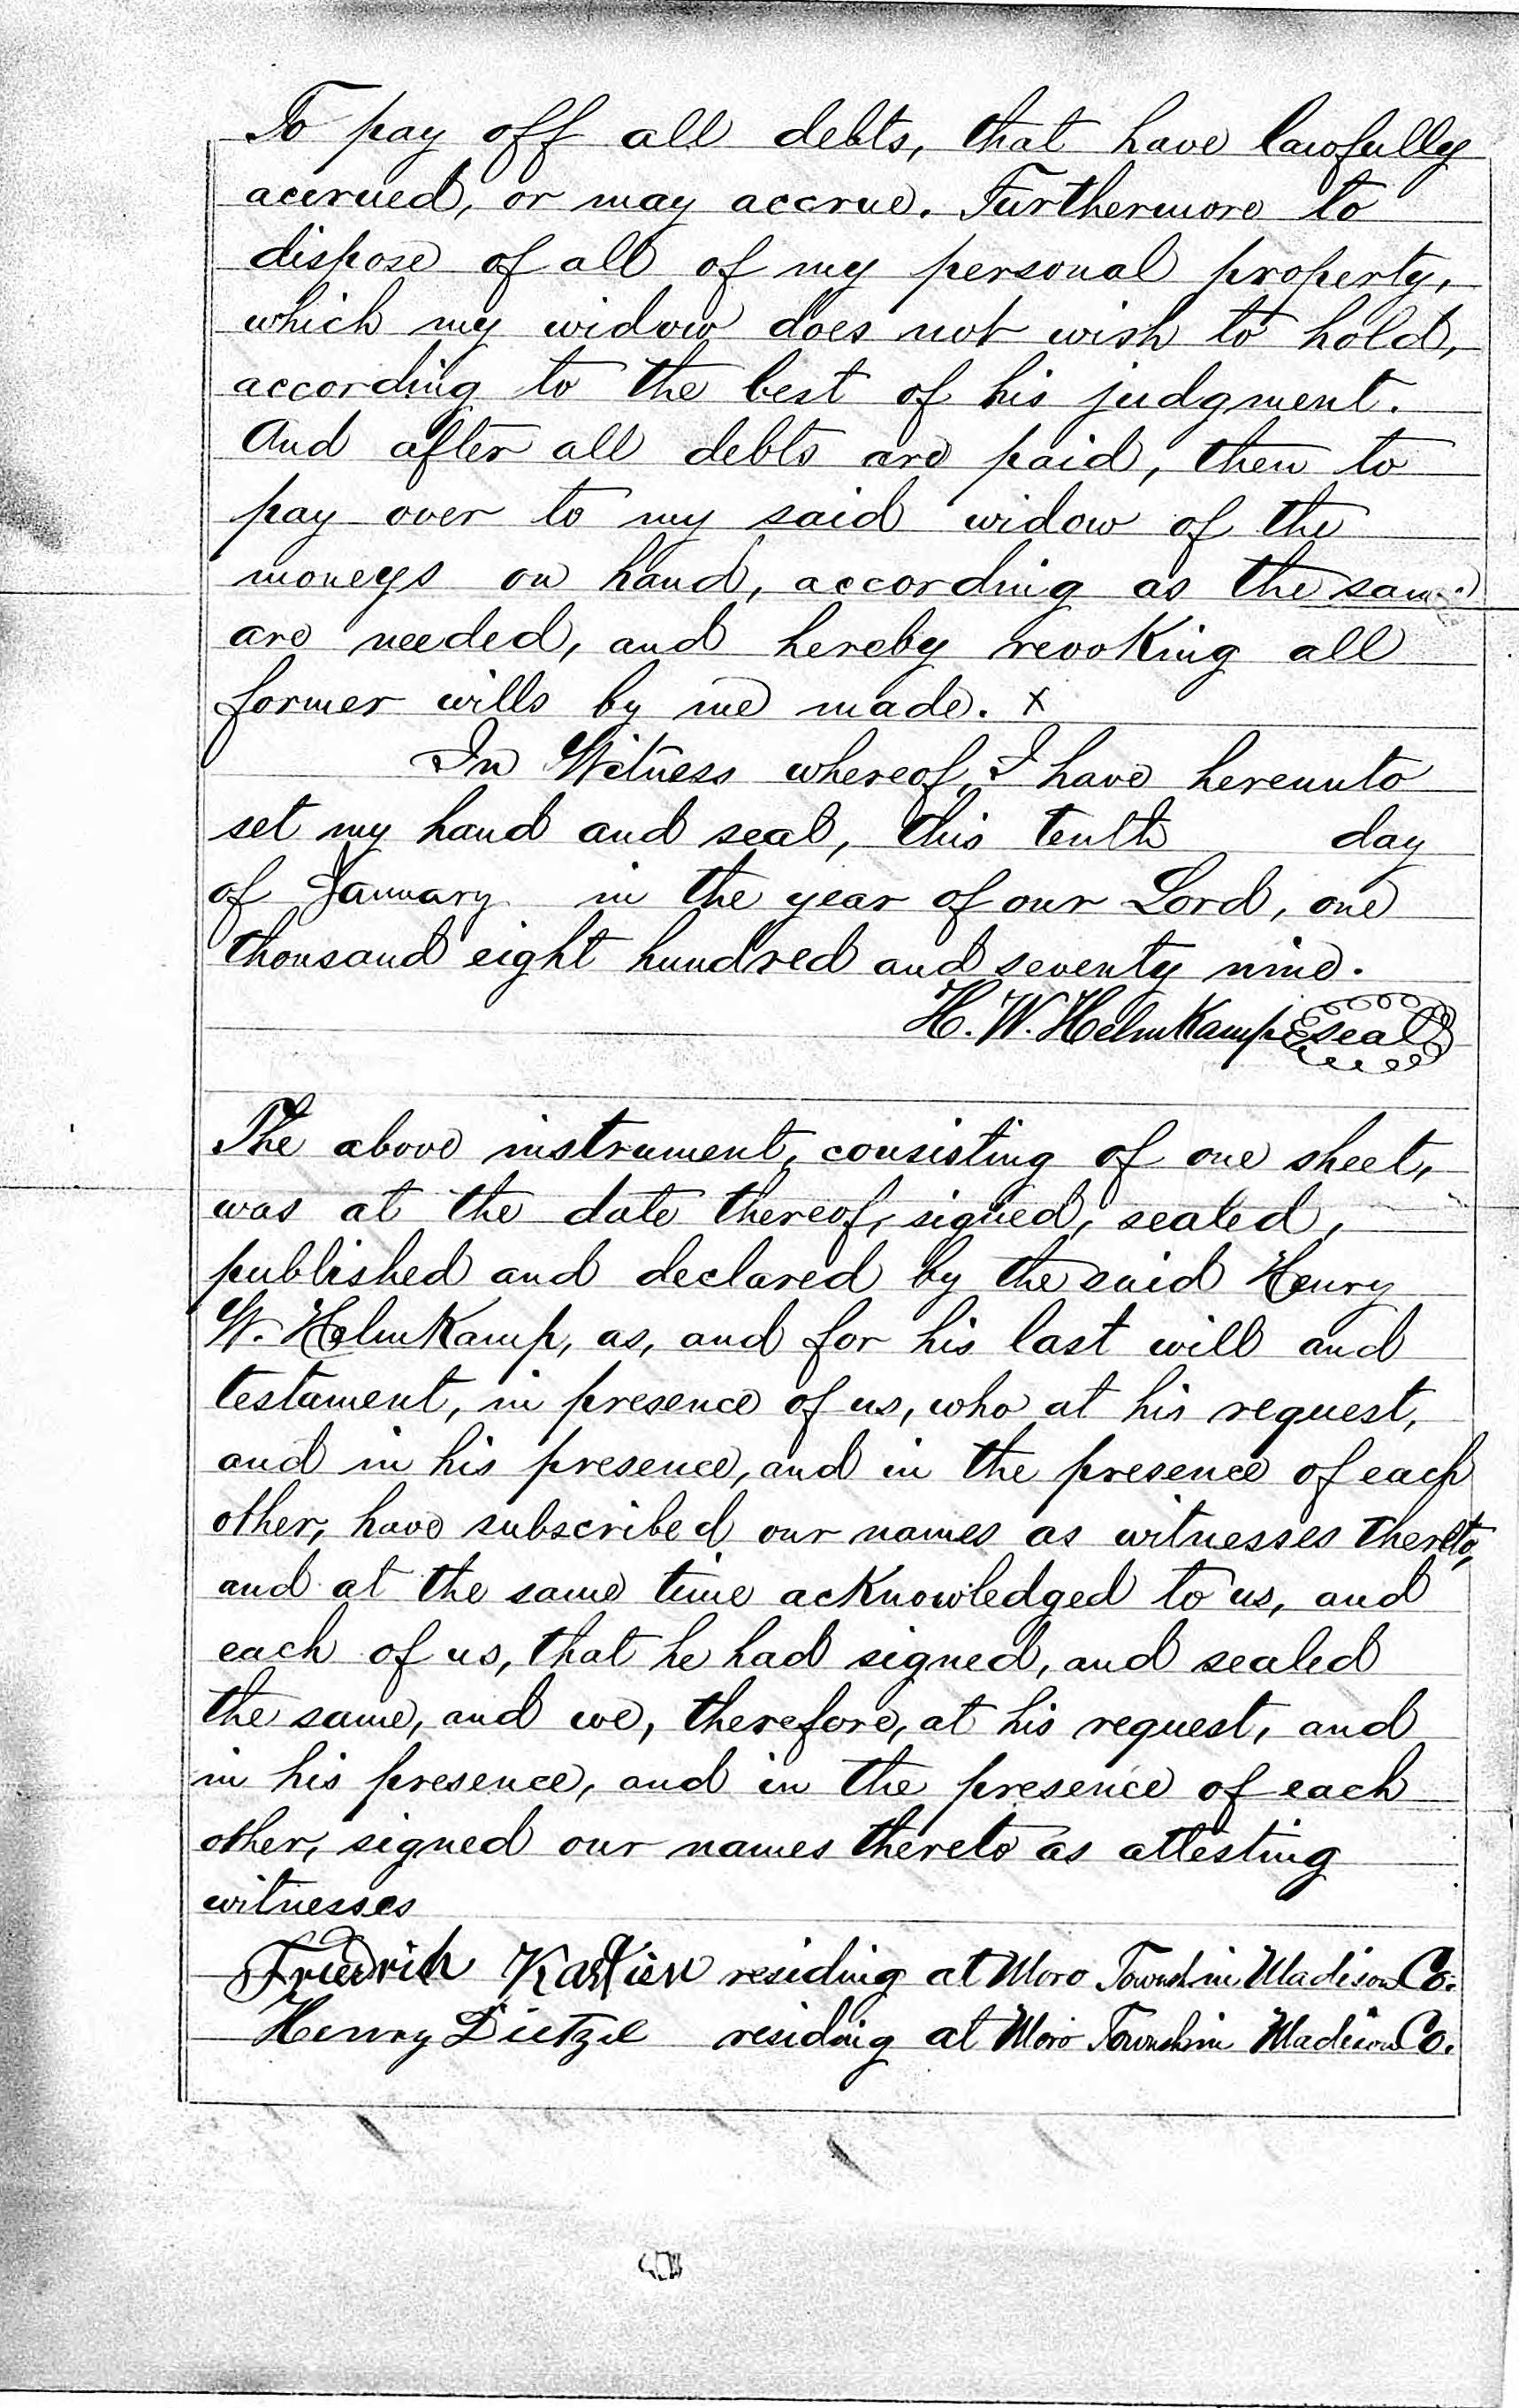 To pay off all debts, that have lawfully
accrued, or may accrue. Furthermore to
dispose of all of my personal property,
which my widow does not wish to hold,
according to the best of his judgment.
And after all debts are paid, then to
pay over to my said widow of the
moneys on hand, according as the same
are needed, and hereby revoking all
former wills by me made. x
In Witness whereof, I have hereunto
set my hand and seal, this tenth day
of January in the year of our Lord, one
thousand eight hundred and seventy nine.
H. W. Helmkamp seal
The above instrument, consisting of one sheet,
was at the date thereof, signed, sealed,
published and declared by the said Henry
W. Helmkamp, as, and for his last will and
testament, in presence of us, who at his request,
and in his presence, and in the presence of each
other, have subscribed our names as witnesses thereto,
and at the same time acknowledged to us, and
each of us, that he had signed, and sealed
the same, and we, therefore, at his request, and
in his presence, and in the presence of each
other, signed our names thereto as attesting
witnesses
Friedrich residing at Moro Township Madison Co.
Henry Dietzel residing at Moro Township Madison Co.